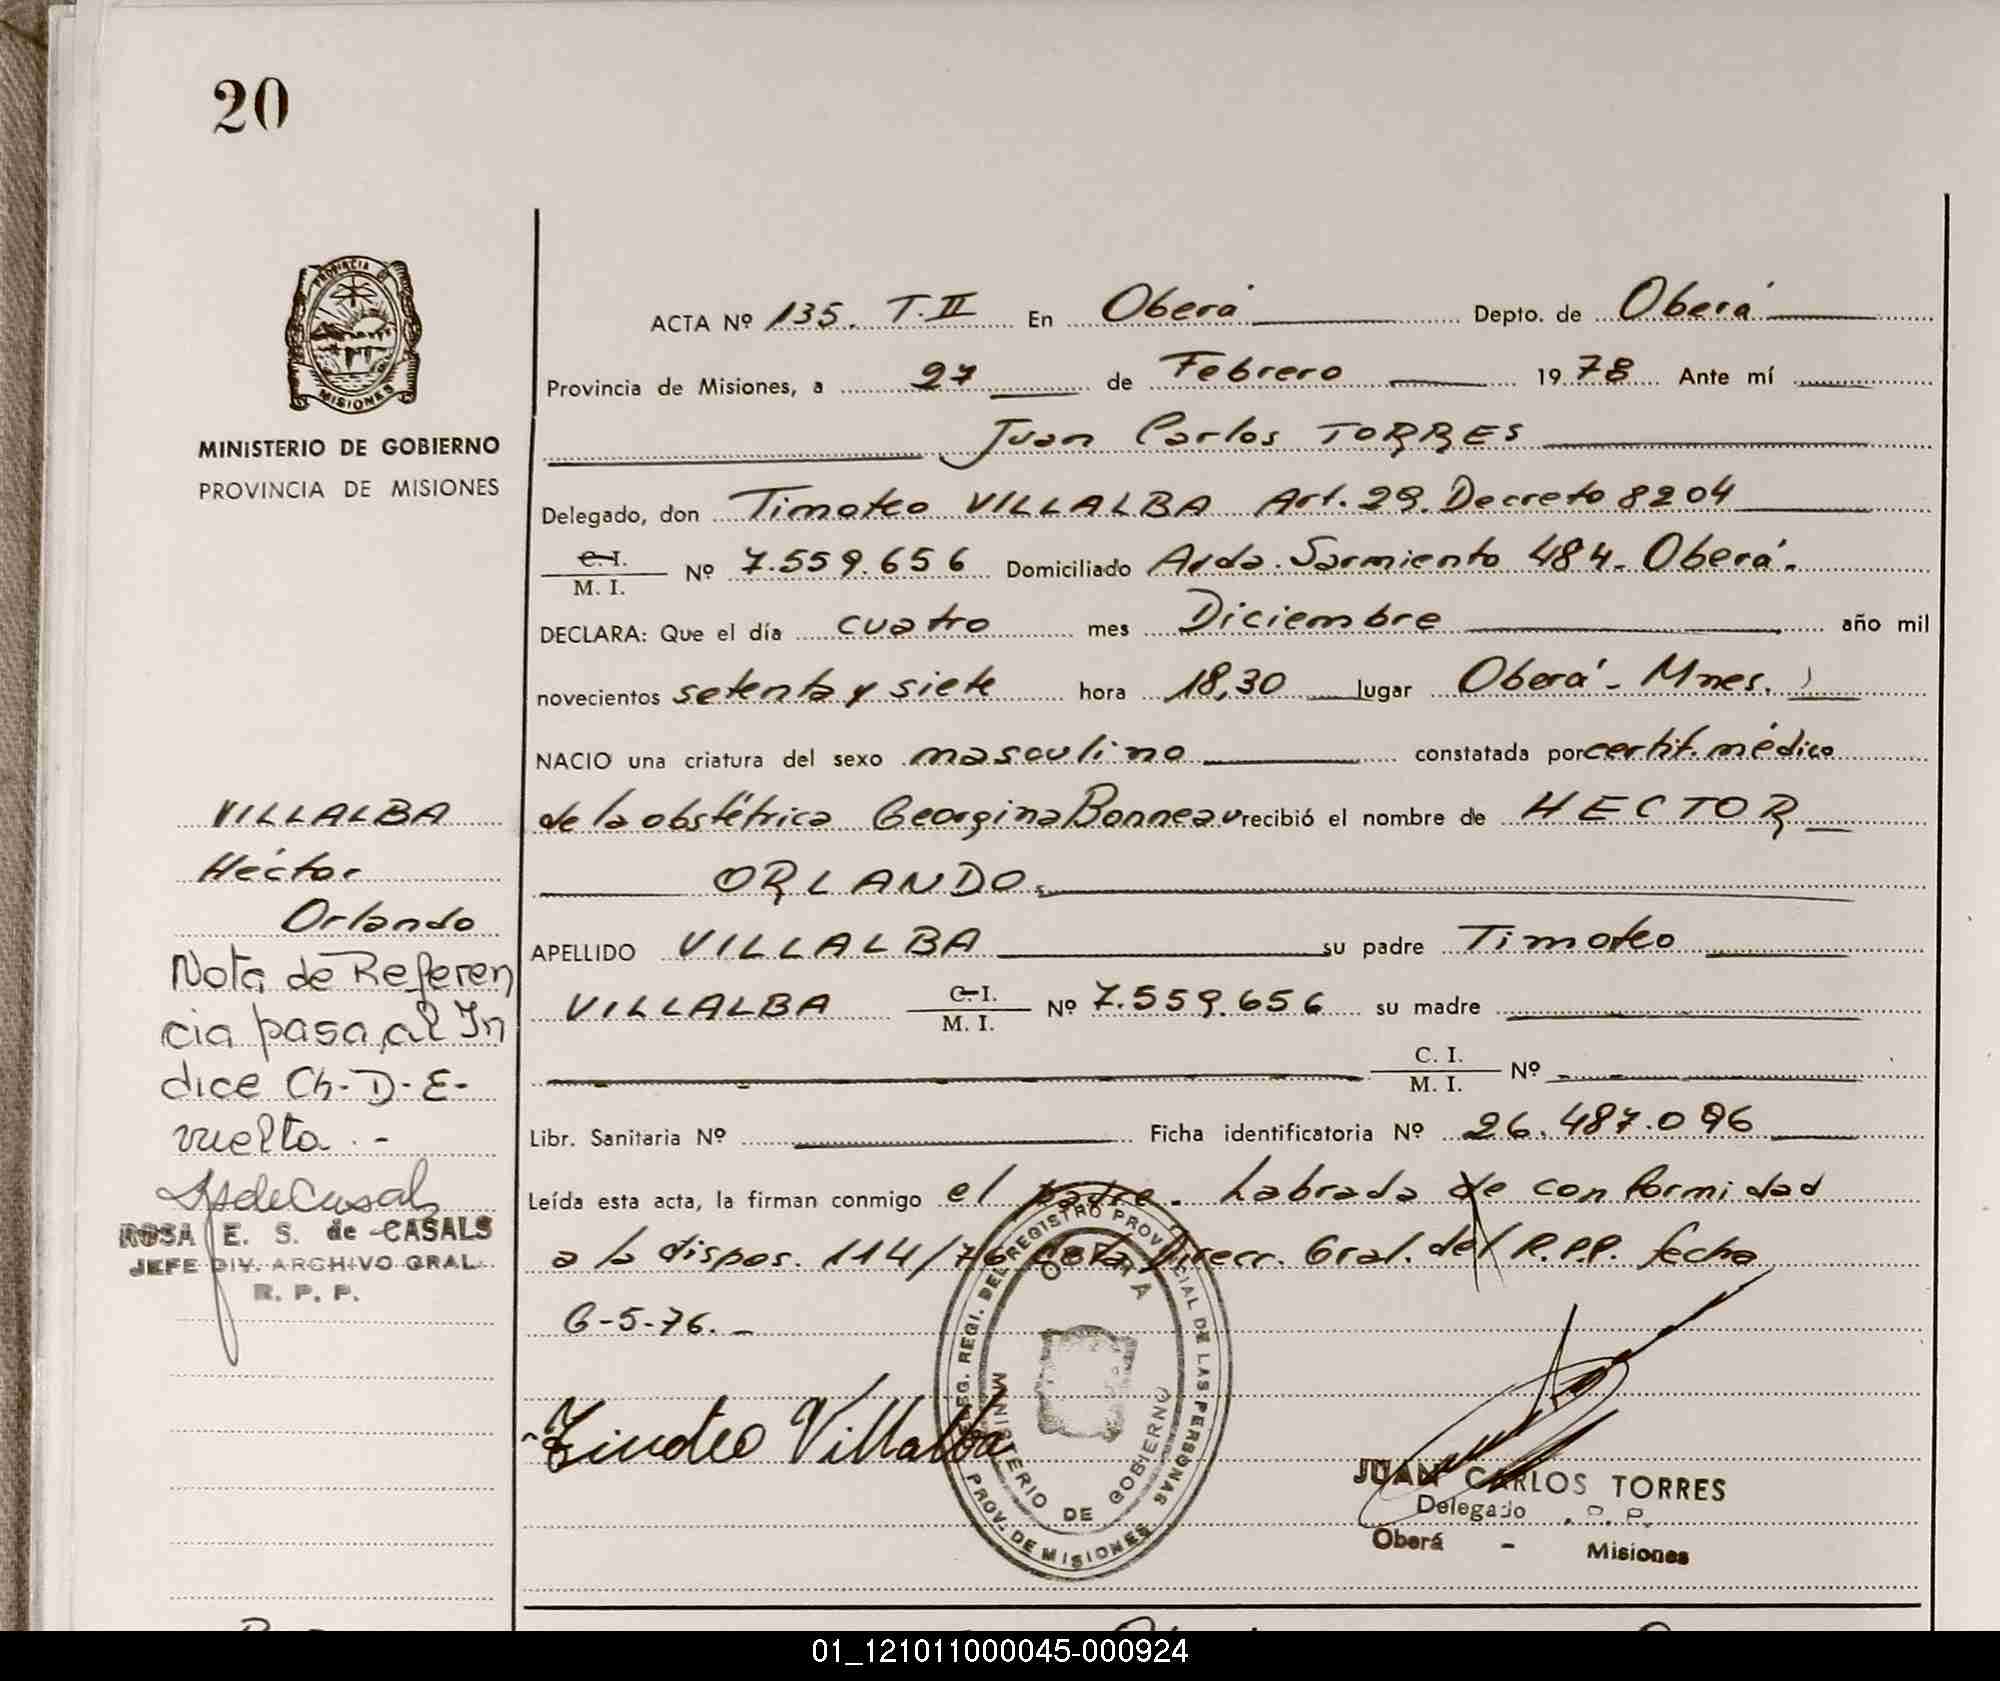 20
PROVINCIA
MISIONES
MINISTERIO DE GOBIERNO
PROVINCIA DE MISIONES
ACTA Nº 135. T. II En Oberá Depto. de Oberá
Provincia de Misiones, a 27 de Febrero 1978 Ante mí
Juan Carlos TORRES
Delegado, don Timoteo VILLALBA Art. 29. Decreto 8204
C. I.
M. I. Nº 7.559.656 Domiciliado Avda. Sarmiento 484. Oberá.
DECLARA: Que el día cuatro mes Diciembre año mil
novecientos setenta y siete hora 18,30 lugar Oberá - Mnes.
NACIO una criatura del sexo masculino constatada por certif. médico
de la obstétrica Georgina Bonneau recibió el nombre de HECTOR
ORLANDO.
APELLIDO VILLALBA su padre Timoteo
VILLALBA C. I.
M. I. Nº 7.559.656 su madre
C. I.
M. I. Nº
Libr. Sanitaria Nº Ficha identificatoria Nº 26.487.096
Leída esta acta, la firman conmigo el padre. Labrada de conformidad
a la dispos. 114/76 de la Direcc. Gral. del R.P.P. fecha
6-5-76. -
Timoteo Villalba
VILLALBA
Héctor
Orlando
Nota de Referen
cia pasa al In
dice Ch-D-E-
vuelta. -
ROSA E. S. de CASALS
JEFE DIV. ARCHIVO GRAL.
R. P. P.
DELEG. REGI. DEL REGISTRO PROVINCIAL DE LAS PERSONAS
OBERA
MINISTERIO DE GOBIERNO
PROV. DE MISIONES
JUAN CARLOS TORRES
Delegado R. P. P.
Oberá - Misiones
01_121011000045-000924